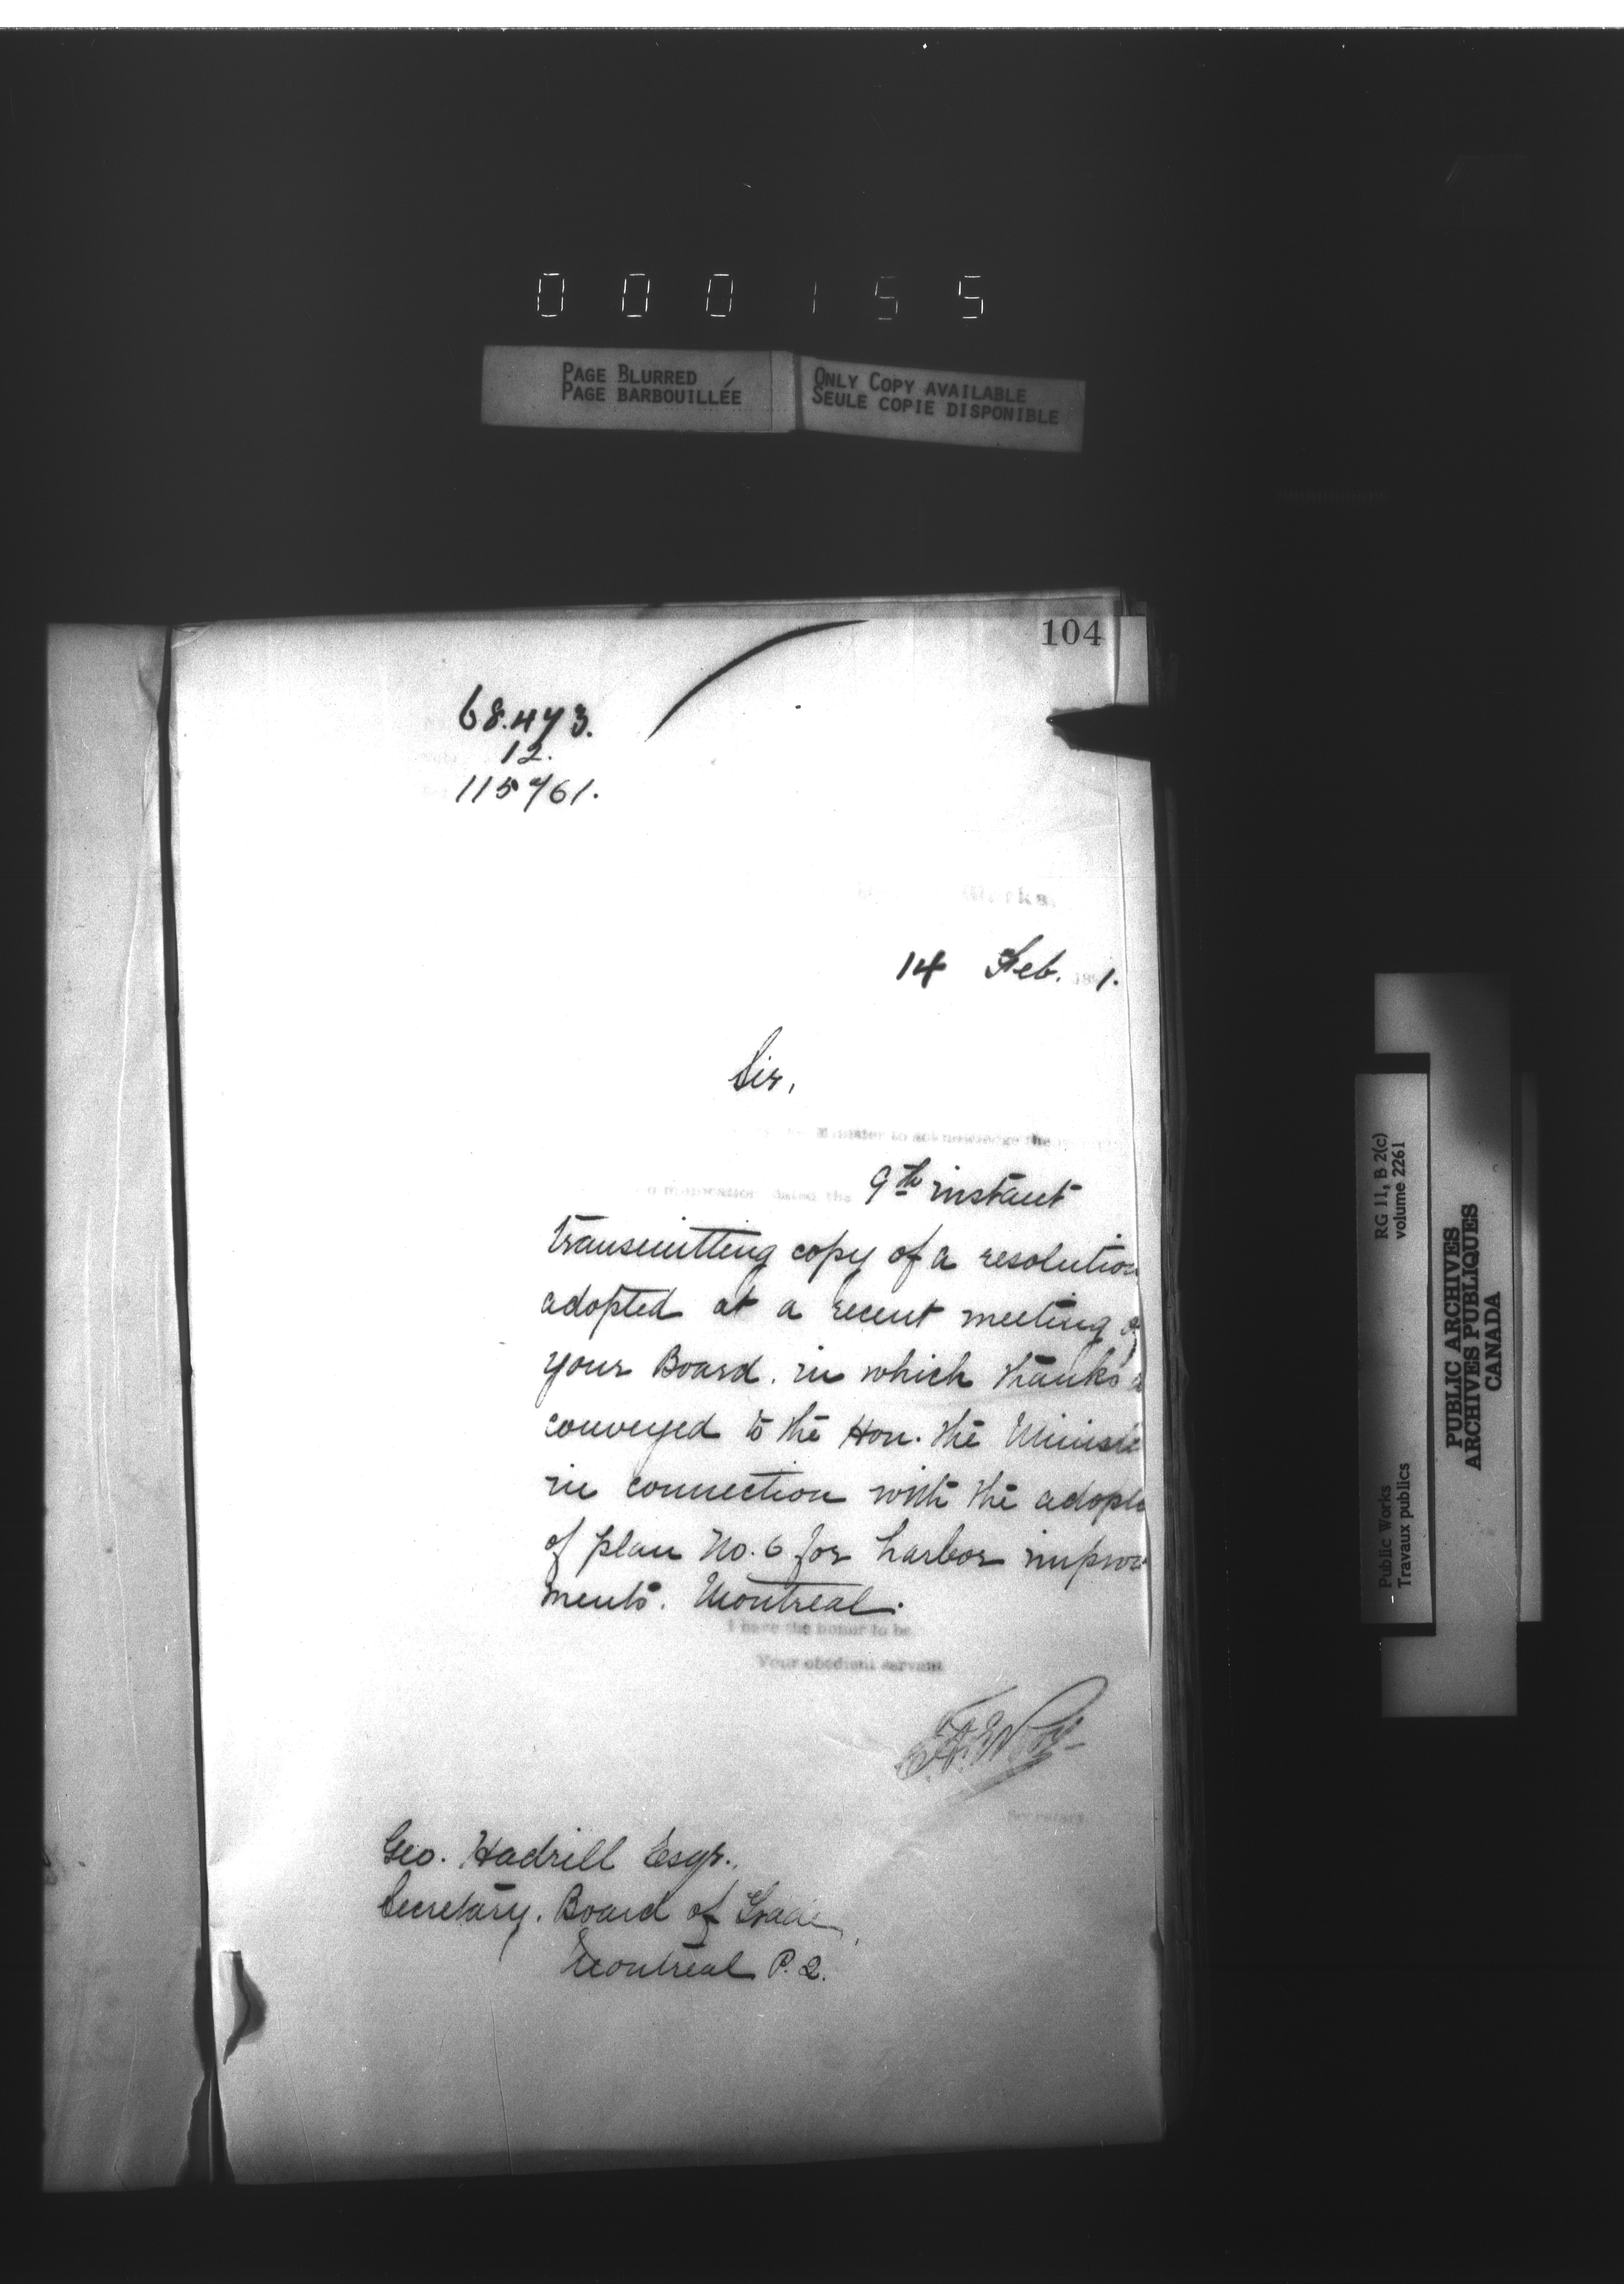 000155
PAGE BLURRED
PAGE BARBOUILLÉE
ONLY COPY AVAILABLE
SEULE COPIE DISPONIBLE
104
68.473.
12.
115761.
Works.
14 Feb. 1.
Sir,
Minister to acknowledge the
dated the 9th instant
transmitting copy of a resolution
adopted at a recent meeting
your Board. in which thanks
conveyed to the Hon. the Ministe
in connection with the adopt
of plan No. 6 for harbor improv
ments. Montreal.
I have the honor to be
Your obedient servant
Secretary
Geo. Hadrill Esqr.,
Secretary. Board of Trade,
Montreal P.Q.
RG 11, B 2(c)
volume 2261
Public Works
Travaux publics
PUBLIC ARCHIVES
ARCHIVES PUBLIQUES
CANADA